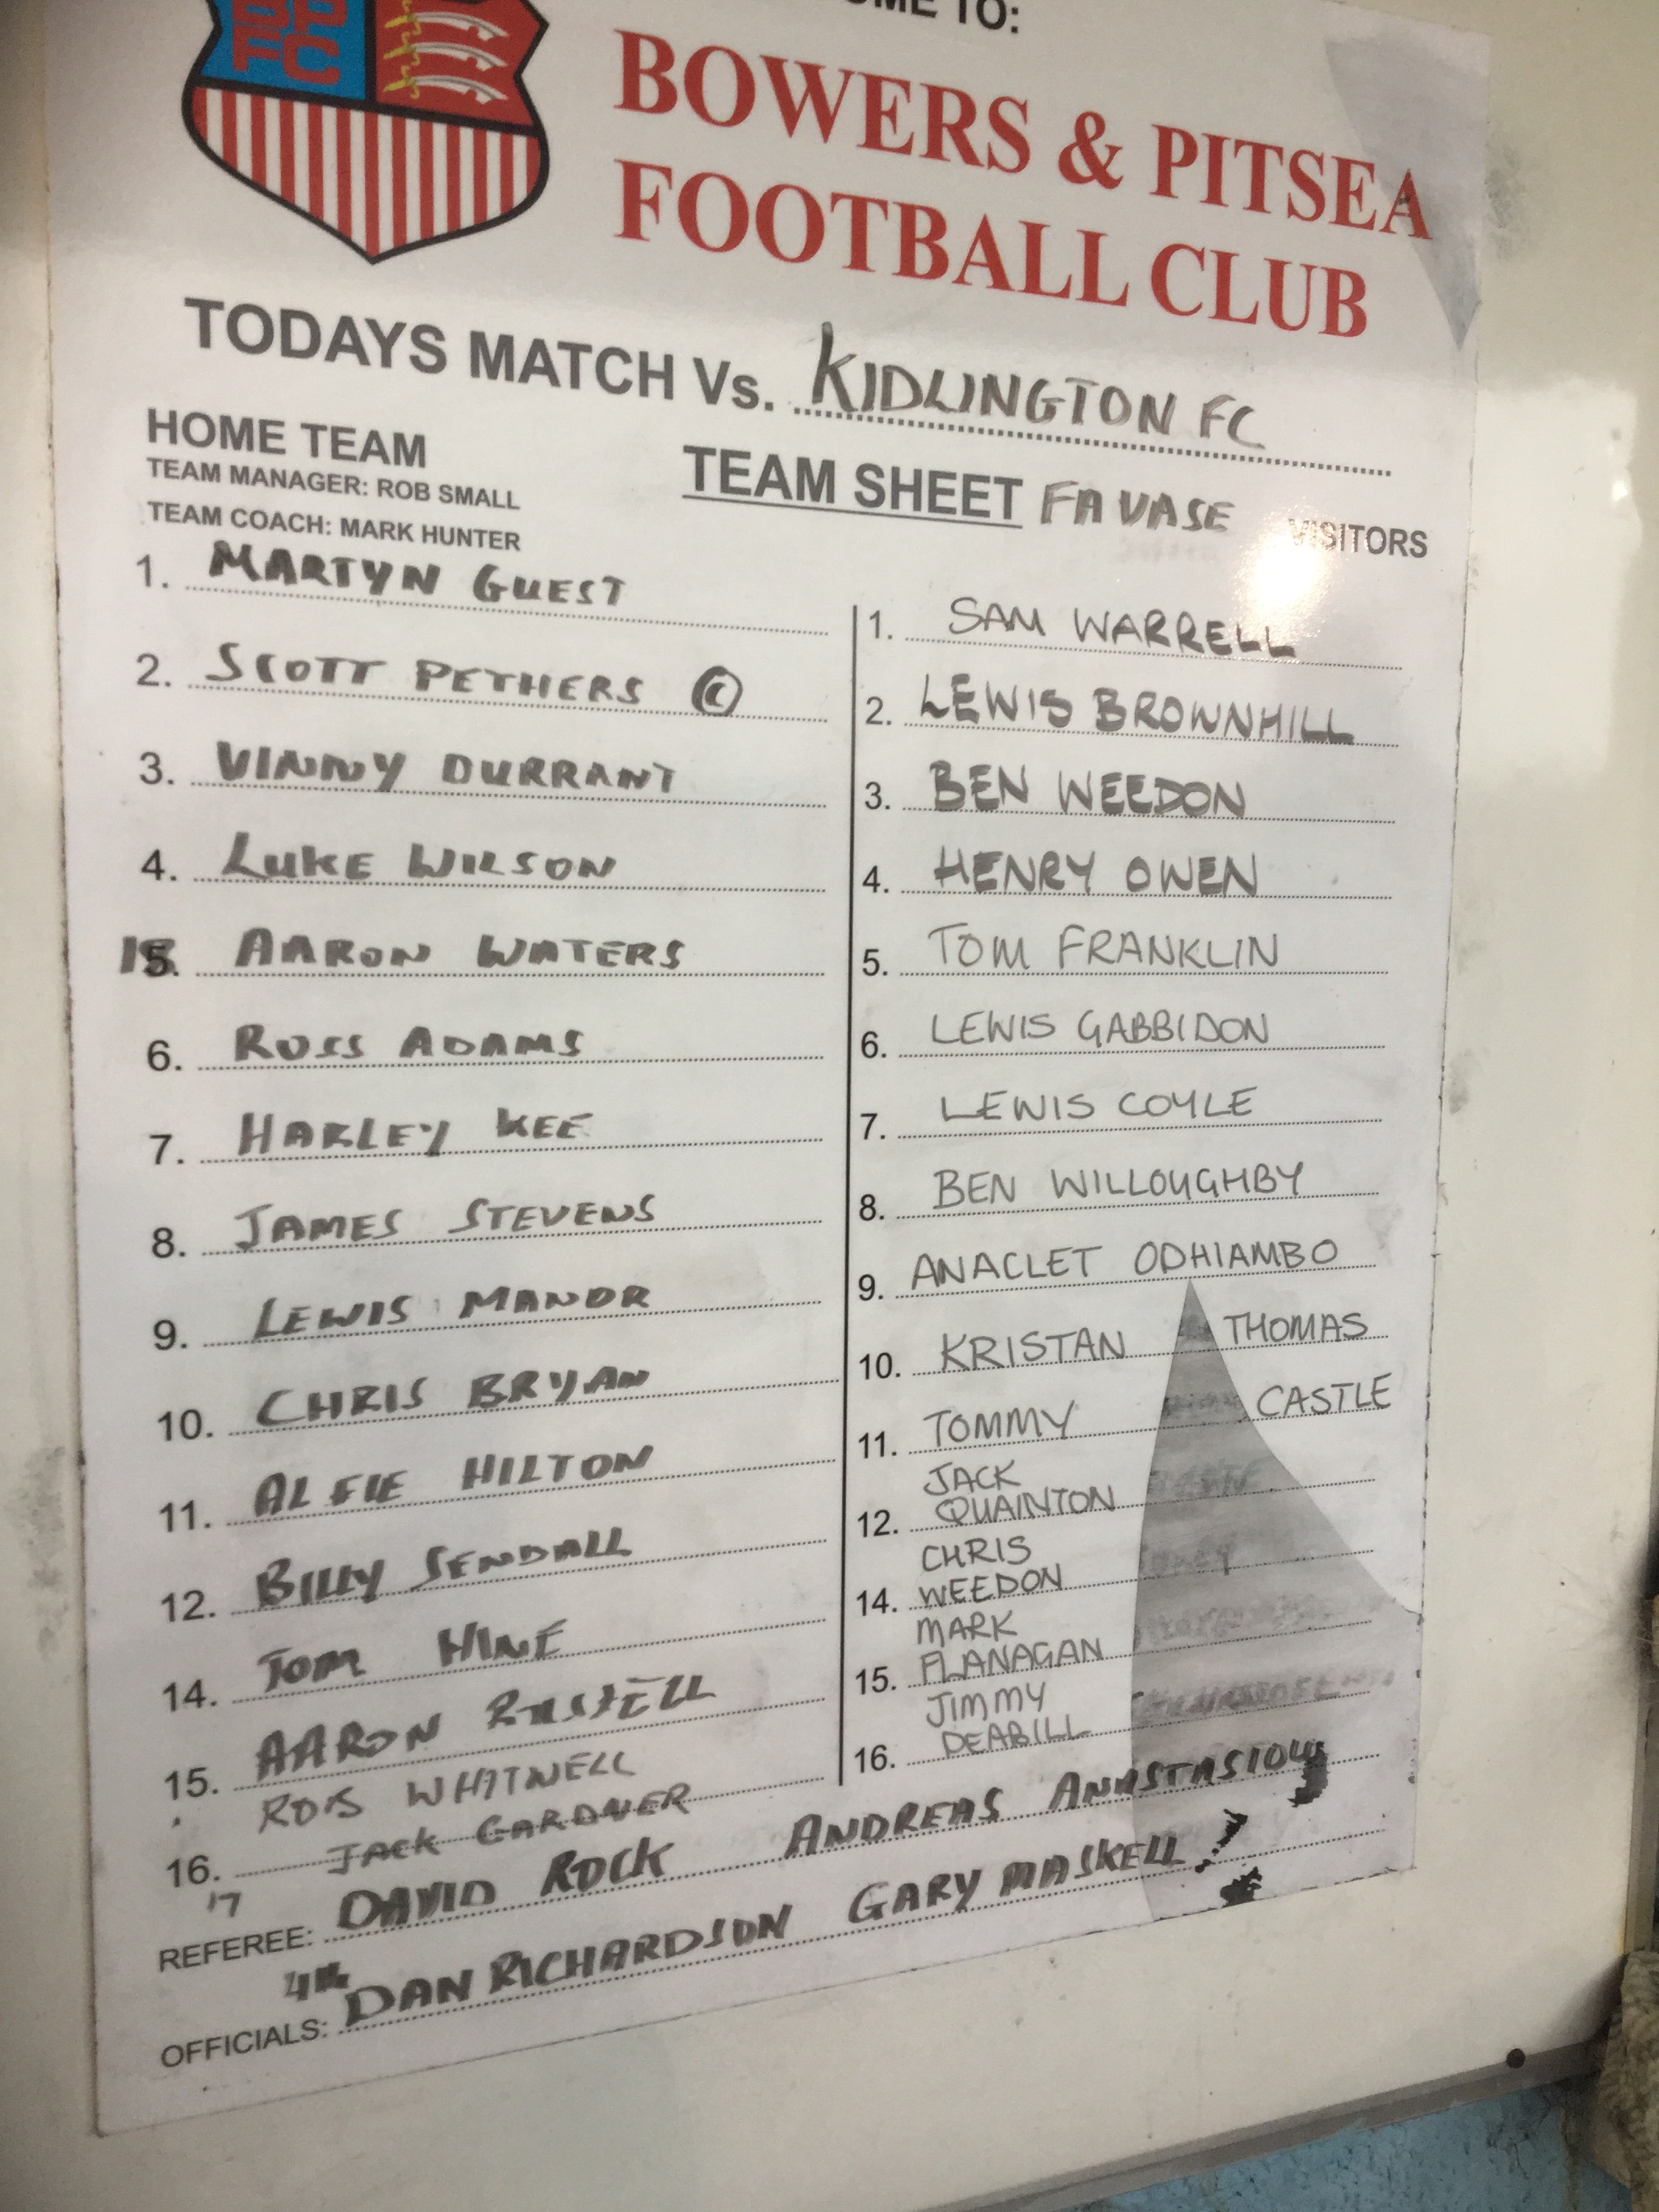 BP
FC
TO:
BOWERS & PITSEA
FOOTBALL CLUB
TODAYS MATCH Vs. KIDLINGTON FC
HOME TEAM
TEAM MANAGER: ROB SMALL
TEAM COACH: MARK HUNTER
TEAM SHEET FA VASE
VISITORS
1. MARTYN GUEST
2. SCOTT PETHERS ©
3. VINNY DURRANT
4. LUKE WILSON
AARON WATERS
6. ROSS ADAMS
7. HARLEY KEE
8. JAMES STEVENS
9. LEWIS MANOR
10. CHRIS BRYAN
11. ALFIE HILTON
12. BILLY SENDALL
14. TOM HINE
15. AARON
WHITNELL
16. JACK GARDNER
17
1. SAM WARRELL
2. LEWIS BROWNHILL
3. BEN WEEDON
4. HENRY OWEN
5. TOM FRANKLIN
6. LEWIS GABBIDON
7. LEWIS COYLE
8. BEN WILLOUGHBY
9. ANACLET ODHIAMBO
10. KRISTAN THOMAS
11. TOMMY CASTLE
JACK
12. QUAINTON
CHRIS
14. WEEDON
MARK
15. FLANAGAN
JIMMY
16. DEABILL
REFEREE: DAVID ROCK ANDREAS ANASTASIOU
4th
OFFICIALS: DAN RICHARDSON GARY MASKELL